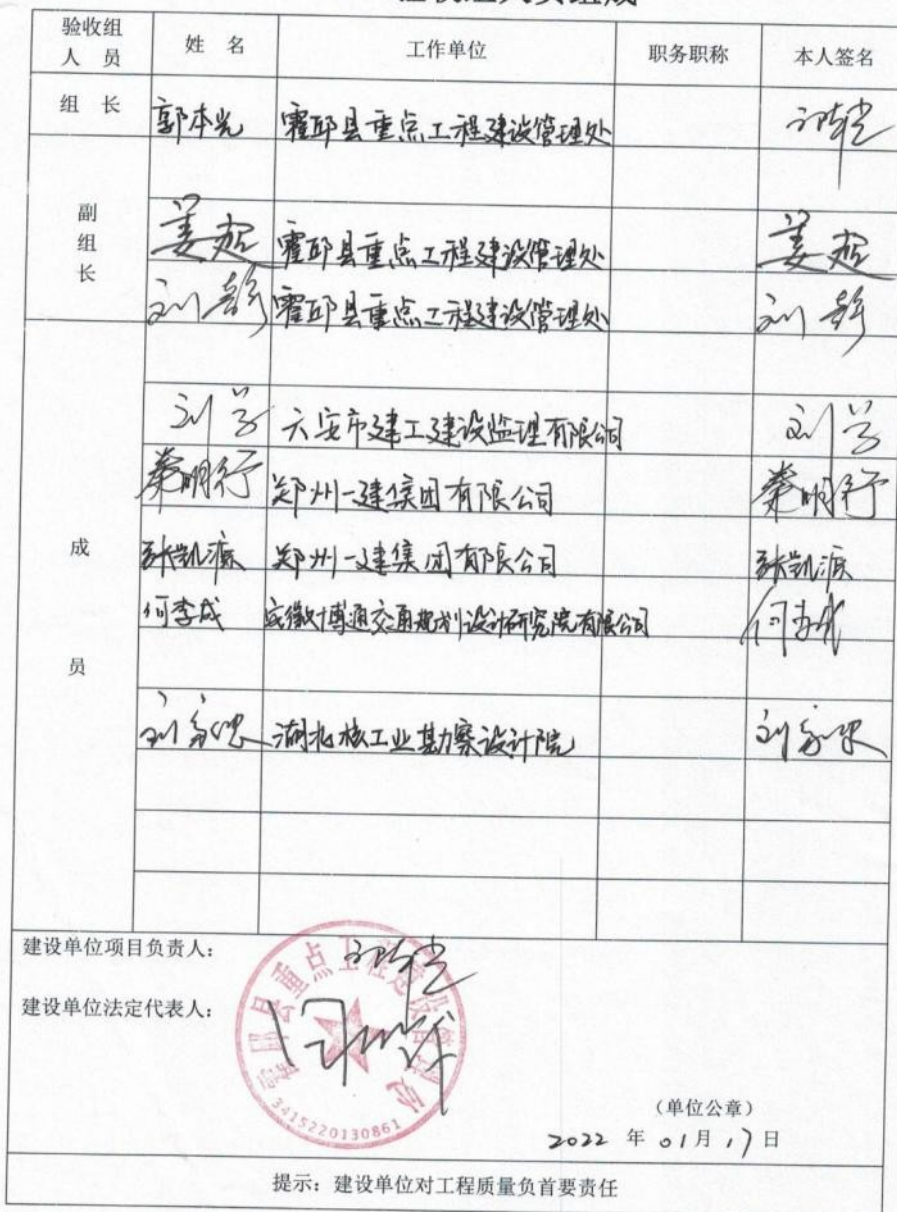 验收组人员组成
验收组
人 员
姓 名
工作单位
职务职称
本人签名
组 长
郭本光
霍邱县重点工程建设管理处
副
组
长
姜超
霍邱县重点工程建设管理处
姜超
刘彭
霍邱县重点工程建设管理处
刘彭
成
员
刘学
六安市建工建设监理有限公司
刘学
秦明行
郑州一建集团有限公司
秦明行
张凯源
郑州一建集团有限公司
张凯源
何李成
安徽博通交通规划设计研究院有限公司
湖北核工业勘察设计院
建设单位项目负责人：
建设单位法定代表人：
霍邱县重点工程建设管理处
3415220130861
（单位公章）
2022 年 01月 17日
提示：建设单位对工程质量负首要责任